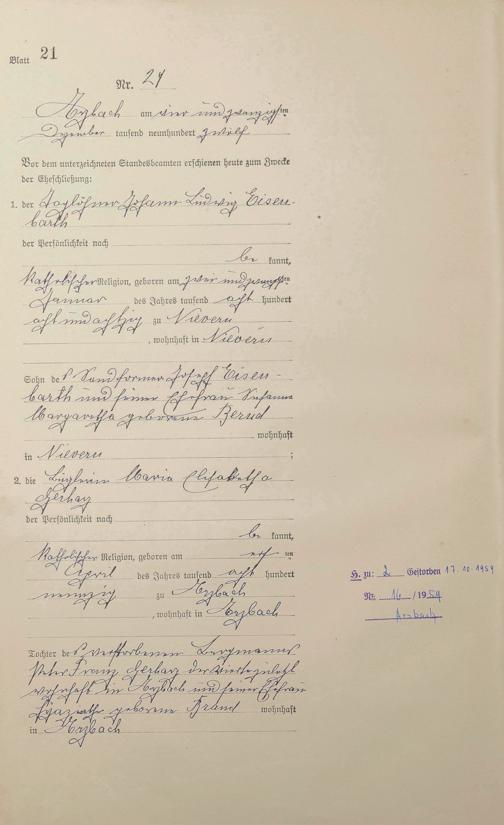 Blatt 21
Nr. 21
Arzbach am vier und zwanzigsten
Dezember tausend neunhundert zwölf
Vor dem unterzeichneten Standesbeamten erschienen heute zum Zwecke
der Eheschließung:
1. der Taglöhner Johann Ludwig Eisen-
barth
der Persönlichkeit nach
be kannt,
Katholischer Religion, geboren am zwei und zwanzigsten
Januar des Jahres tausend acht hundert
acht und achtzig zu Nievern
, wohnhaft in Nievern
Sohn des Sandformer Josef Eisen-
barth und seiner Ehefrau Susanna
Margaretha geborene Bernd
wohnhaft
in Nievern ;
2. die Maria Elisabetha
Gerhaz
der Persönlichkeit nach
be kannt,
Katholischer Religion, geboren am ten
April des Jahres tausend acht hundert
neunzig zu Arzbach
, wohnhaft in Arzbach
Tochter des verstorbenen Bergmanns
Peter Franz Gerhaz der zuletzt
wohnhaft in Arzbach und seiner Ehefrau
geborene Brand wohnhaft
in Arzbach
H. zu: 2 Gestorben 17.10.1959
Nr. 16 /1959
Arzbach